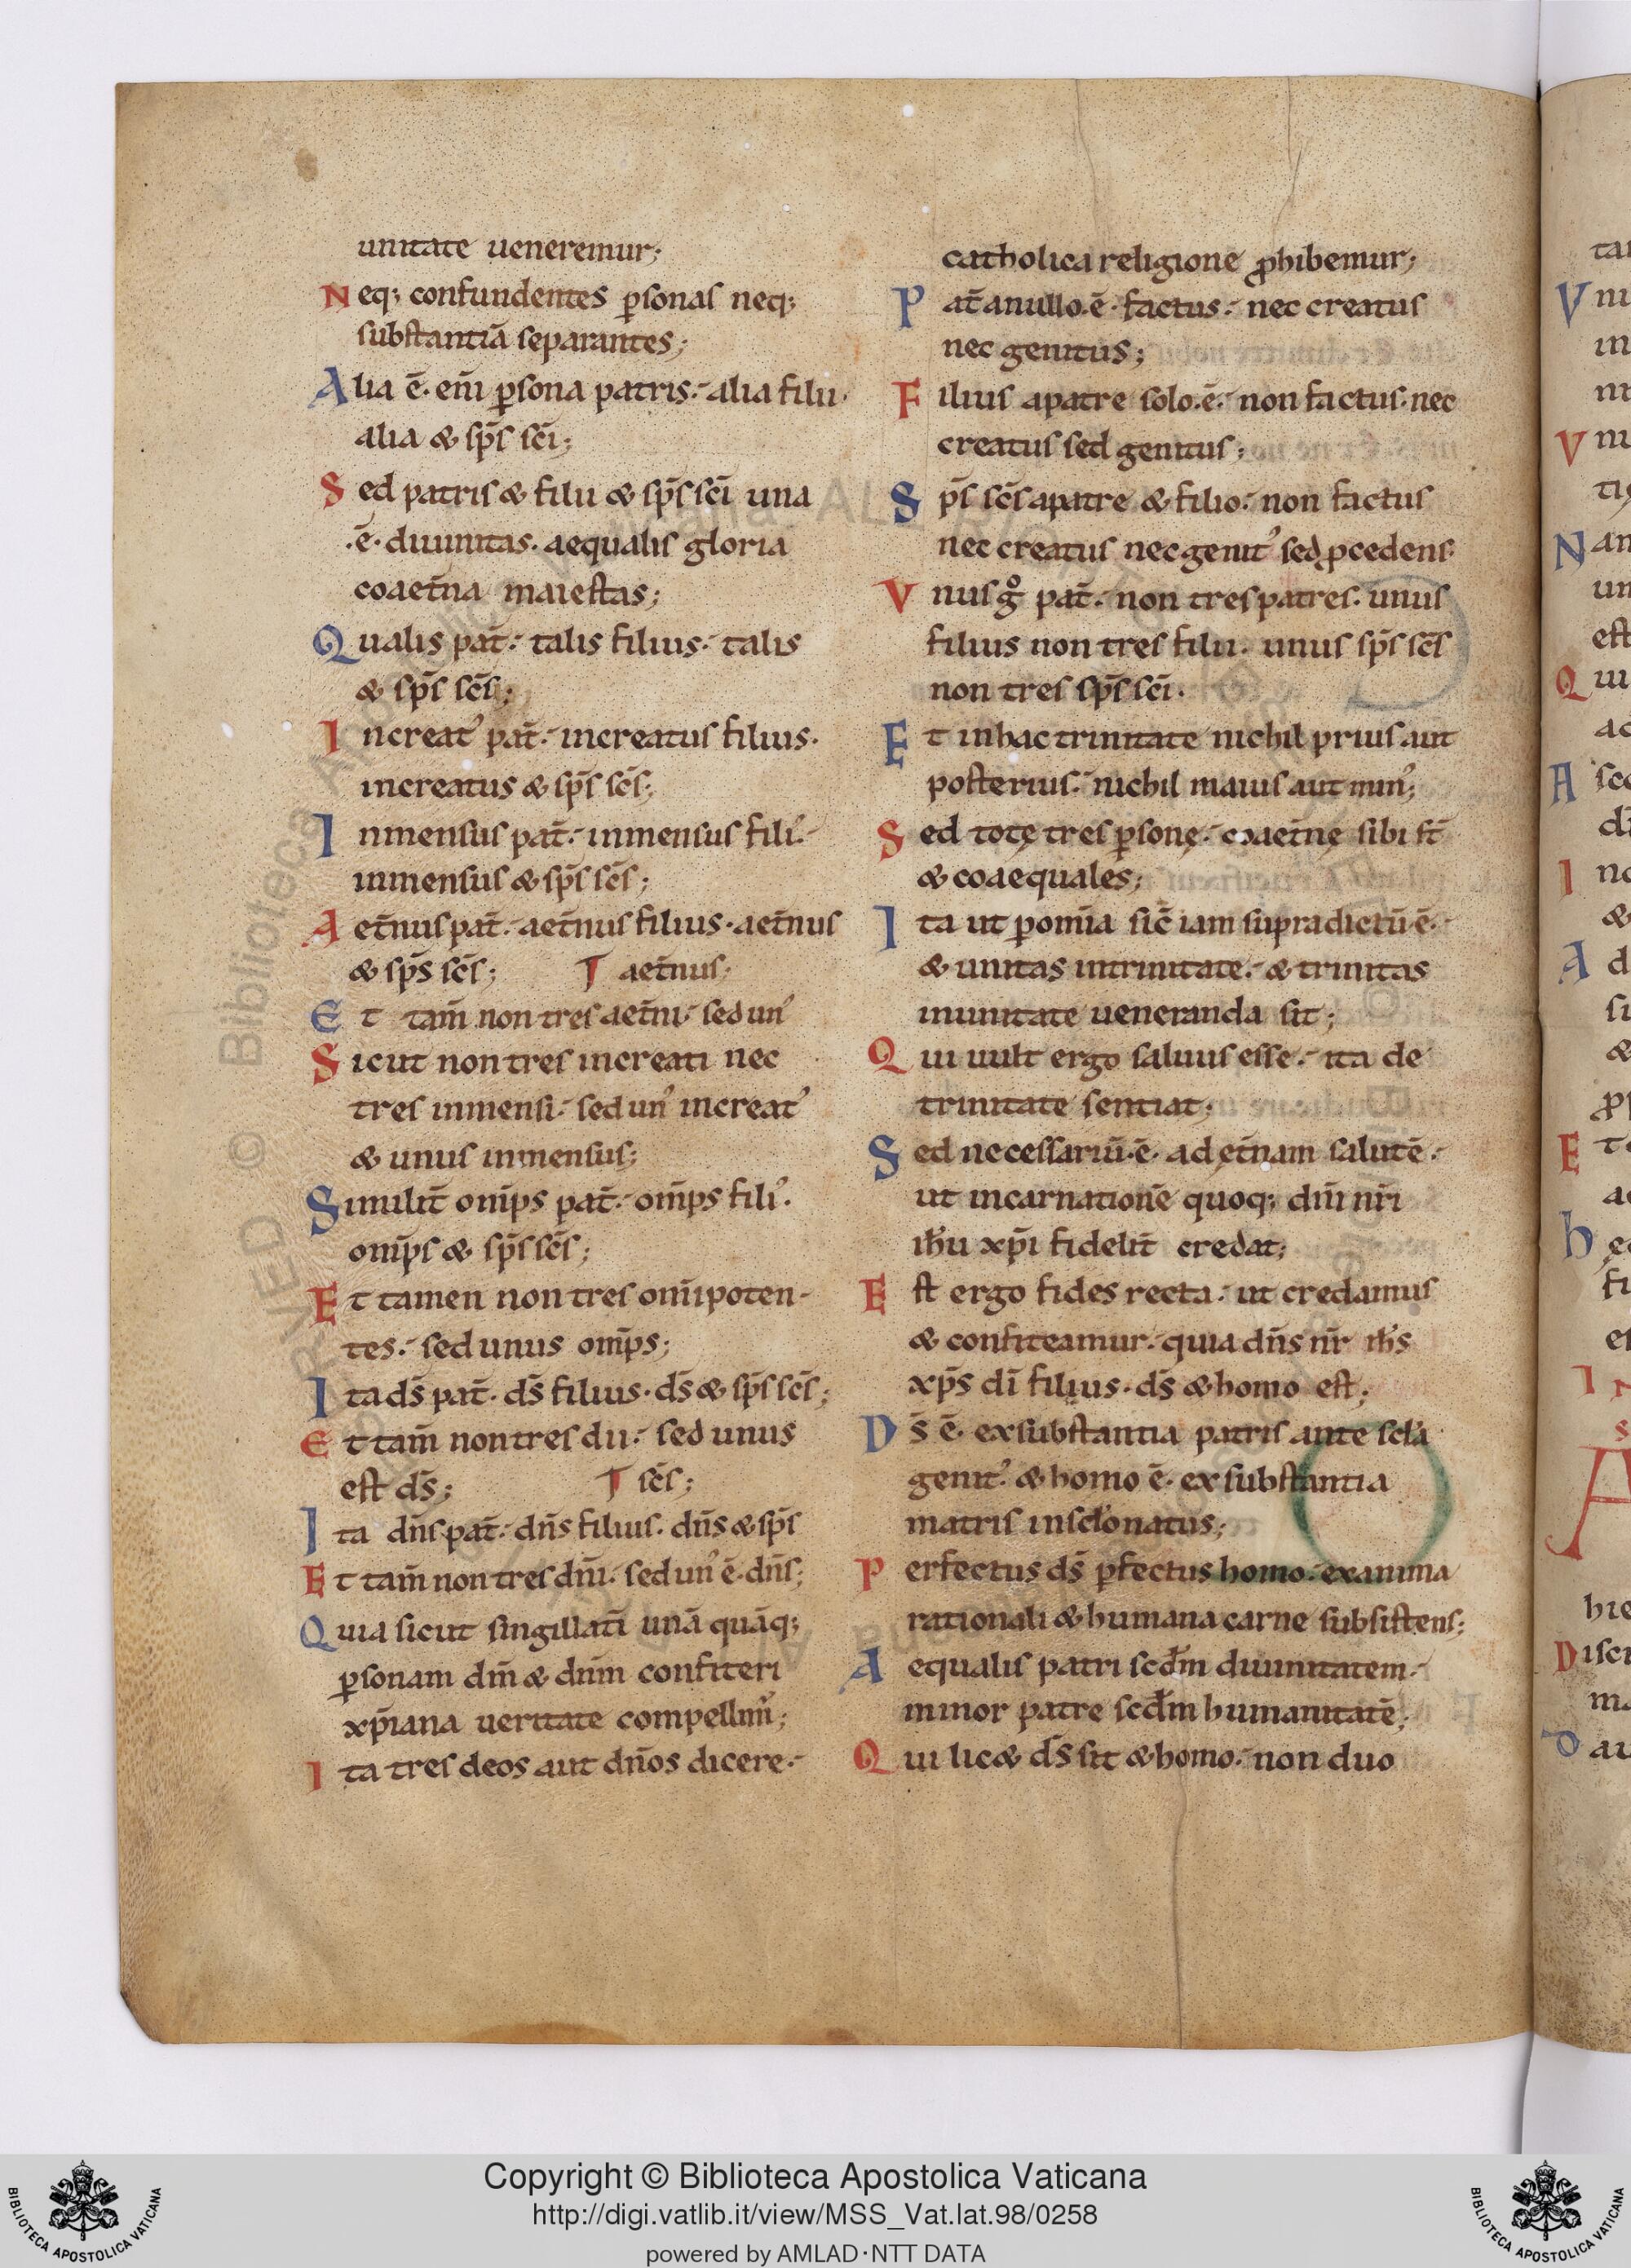 unitate ueneremur;
Neq; confundentes p̱sonas neq;
substantiā separantes;
Alia ē. eni̅ p̱sona patris. alia filii.
alia & sp̅s sc̅i;
Sed patris & filii & sp̅s sc̅i una
.ē. diuinitas. aequalis gloria
coaet̅na maiestas;
Qualis pat̅. talis filius. talis
& sp̅s sc̅s;
Increat᾽ pat̅. increatus filius.
increatus & sp̅s sc̅s;
Inmensus pat̅. inmensus fili᾽.
inmensus & sp̅s sc̅s;
Aet̅nus pat̅. aet̅nus filius. aet̅nus
& sp̅s sc̅s; aet̅nus.
Et tam̅ non tres aet̅ni. sed un᾽
Sicut non tres increati nec
tres inmensi. sed un᾽ increat᾽
& unus inmensus;
Similit̅ om̅ps pat̅. om̅ps fili᾽.
om̅ps & sp̅s sc̅s;
Et tamen non tres om̅ipoten-
tes. sed unus om̅ps;
Ita ds̅ pat̅. ds̅ filius. ds̅ & sp̅s sc̅s;
Et tam̅ non tres dii. sed unus
est ds̅; sc̅s;
Ita dn̅s pat̅. dn̅s filius. dn̅s & sp̅s
Et tam̅ non tres dn̅i. sed un᾽ ē. dn̅s;
Quia sicut singillati̅ unā quāq;
p̱sonam dm̅ & dn̅m confiteri
xp̅iana ueritate compellim᾽;
Ita tres deos aut dn̅os dicere.
catholica religione ꝓhibemur;
Pat̅ a nullo. ē. factus. nec creatus
nec genitus;
Filius a patre solo. ē. non factus. nec
creatus sed genitus;
Sp̅s sc̅s a patre & filio. non factus
nec creatus nec genit᾽ sed ꝓcedens
Vnus gͦ pat̅. non tres patres. unus
filius non tres filii. unus sp̅s sc̅s
non tres sp̅s sc̅i.
Et in hac trinitate nichil prius aut
posterius. nichil maius aut min᾽;
Sed totę tres p̱sonę. coaet̅nę sibi st̅
& coaequales;
Ita ut p̱ om̅ia sic̅ iam supradictū. ē.
& unitas in trinitate. & trinitas
in unitate ueneranda sit;
Qui uult ergo saluus esse. ita de
trinitate sentiat;
Sed necessariū. ē. ad ęt̅nam salutē.
ut incarnationē quoq; dn̅i nr̅i
ih̅u xp̅i fidelit̅ credat;
Est ergo fides recta. ut credamus
& confiteamur. quia dn̅s nr̅ ih̅s
xp̅s di̅ filius. ds̅ & homo est;
Ds̅ ē. ex substantia patris ante scl̅a
genit᾽. & homo ē. ex substantia
matris in scl̅o natus;
Perfectus ds̅ p̱fectus homo. ex anima
rationali & humana carne subsistens;
Aequalis patri scd̅m diuinitatem.
minor patre scd̅m humanitatē;
Qui lic& ds̅ sit & homo. non duo
Copyright © Biblioteca Apostolica Vaticana
http://digi.vatlib.it/view/MSS_Vat.lat.98/0258
powered by AMLAD·NTT DATA
BIBLIOTECA APOSTOLICA VATICANA
BIBLIOTECA APOSTOLICA VATICANA